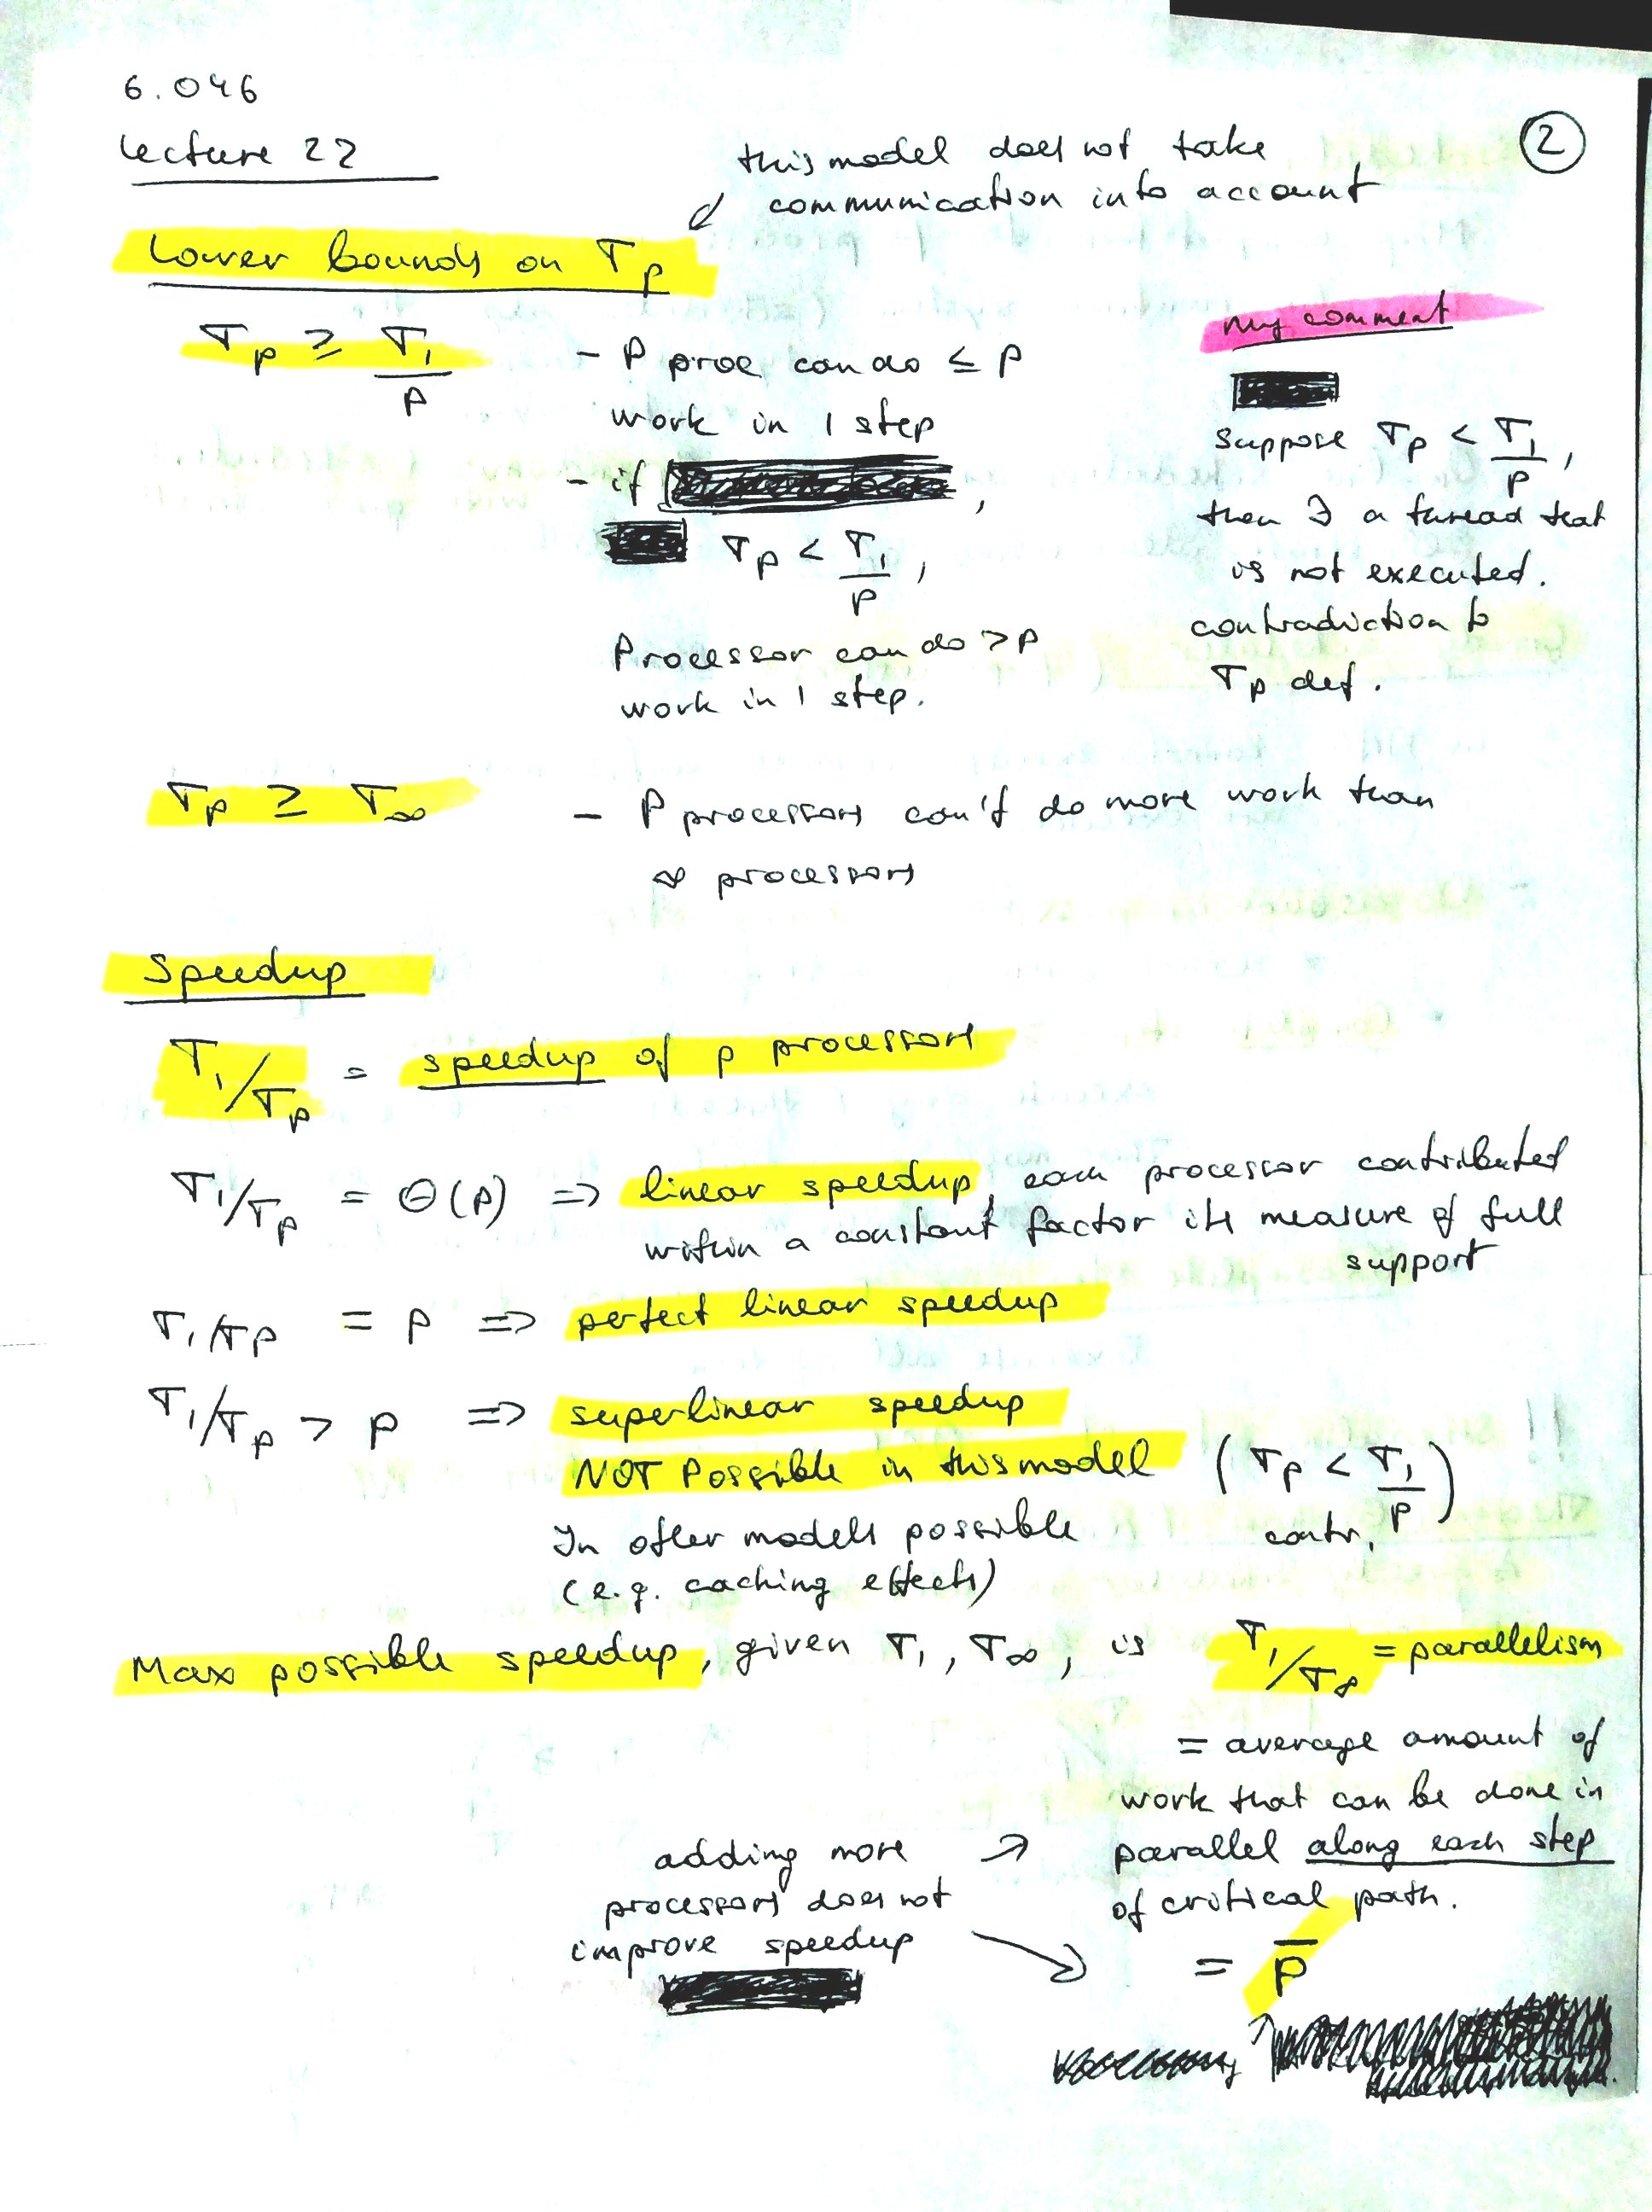 6.046
Lecture 22
②
this model does not take
communication into account
Lower bounds on Tp
Tp ≥ T1/P
- P proc can do ≤ P
work in 1 step
- if ,
Tp < T1/P ,
Processor can do > P
work in 1 step.
My comment
suppose Tp < T1/P ,
then ∃ a thread that
is not executed.
contradiction to
Tp def.
Tp ≥ T∞
- P processors can't do more work than
∞ processors
Speedup
T1/Tp = speedup of p processors
T1/Tp = Θ(P) => linear speedup, each processor contributed
within a constant factor its measure of full
support
T1/Tp = P => perfect linear speedup
T1/Tp > P => superlinear speedup
NOT Possible in this model (Tp < T1/P)
contr.
In other models possible
(e.g. caching effects)
Max possible speedup, given T1, T∞, is T1/T∞ = parallelism
= average amount of
work that can be done in
parallel along each step
of critical path.
adding more
processors does not
improve speedup
= P̅